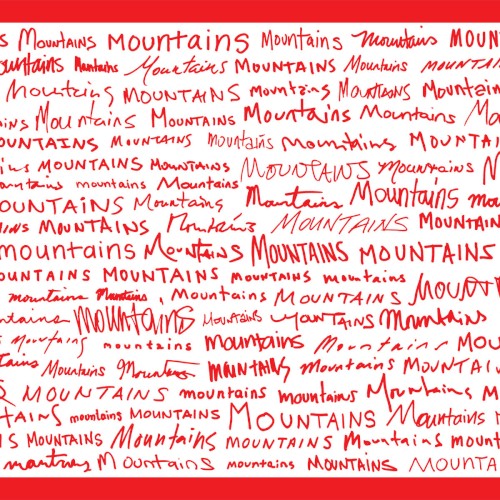 s Mountains mountains Mountains mountains MOUNT
ountains Mountains Mountains MOUNTAINS Mountains MOUNTAIN
Mountains MOUNTAiNS mountains MOUNTAiNS Mountain
ins Mountains MOUNTAINS Mountains Mountains Mo
OUNTAINS MOUNTAINS mountains Mountains MOUNTAI
ins MOUNTAINS MOUNTAINS MOUNTAINS Mountains
ountains mountains Mountains Mountains Mountains mou
OUNTAiNS Mountains
iNS MOUNTAINS Mountains MOUNTAINS MOUNTAIN
mountains Mountains MOUNTAINS MOUNTAINS
OUNTAINS MOUNTAINS MOUNTAINS mountains MOUNT
mountains Mountains, Mountains MOUNTAINS
ntains mountains MOUNTAINS MOUNTAINS Mountains
s Mountains mountains mountains Mountains MOU
tains Mountains Mountains MOUNTAINS mountains MOUNTAI
S MOUNTAINS mountains mountains Mountains M
TAINS mountains MOUNTAINS MOUNTAINS Mountains m
S MOUNTAINS Mountains MOUNTAINS Mountains mount
Mountains mountains MOUNTAINS MOUN